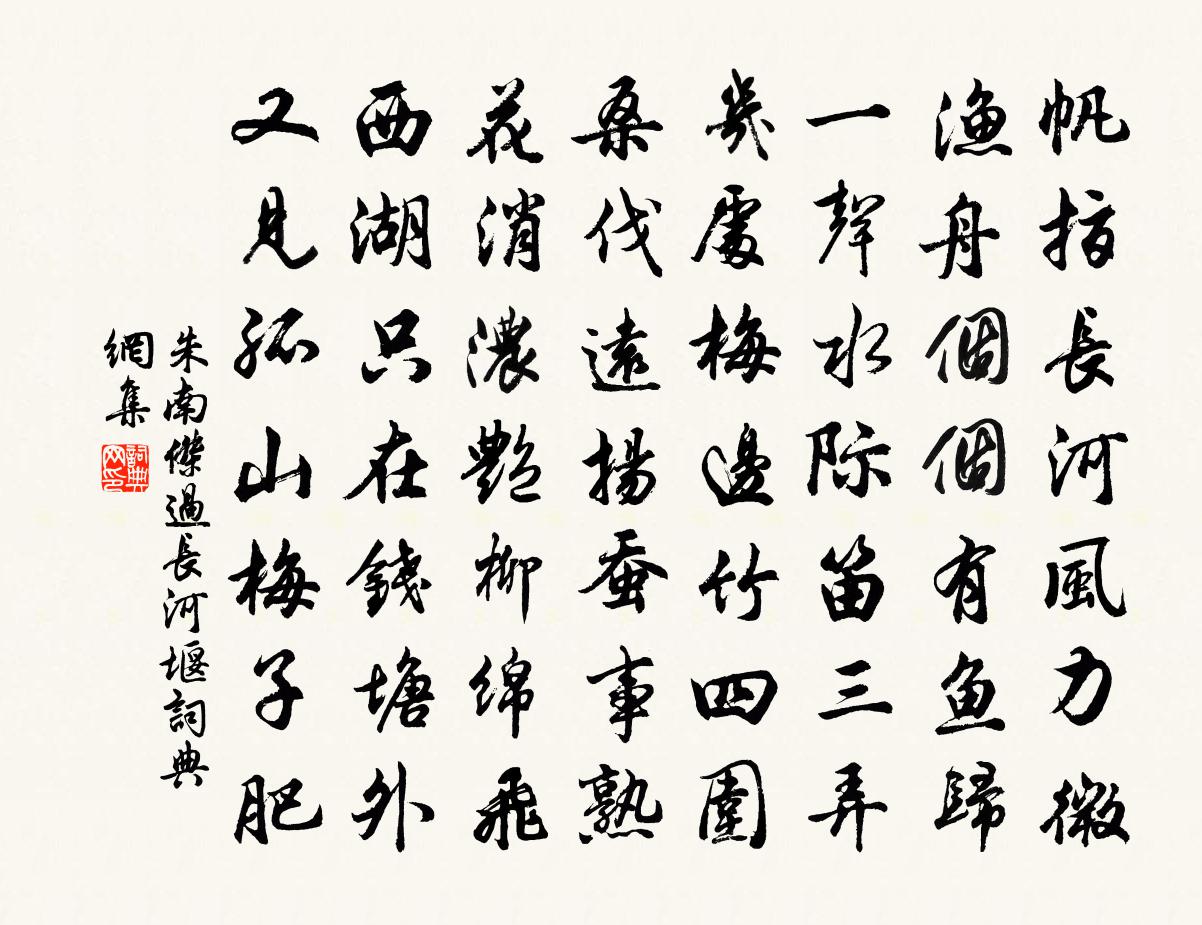 帆指長河風力微
漁舟個個有魚歸
一聲水际笛三弄
幾處梅邊竹四圍
桑伐遠揚蚕事熟
花消濃艷柳綿飛
西湖只在錢塘外
又見孤山梅子肥
朱南傑過長河堰詞典
網集
詞典
网印